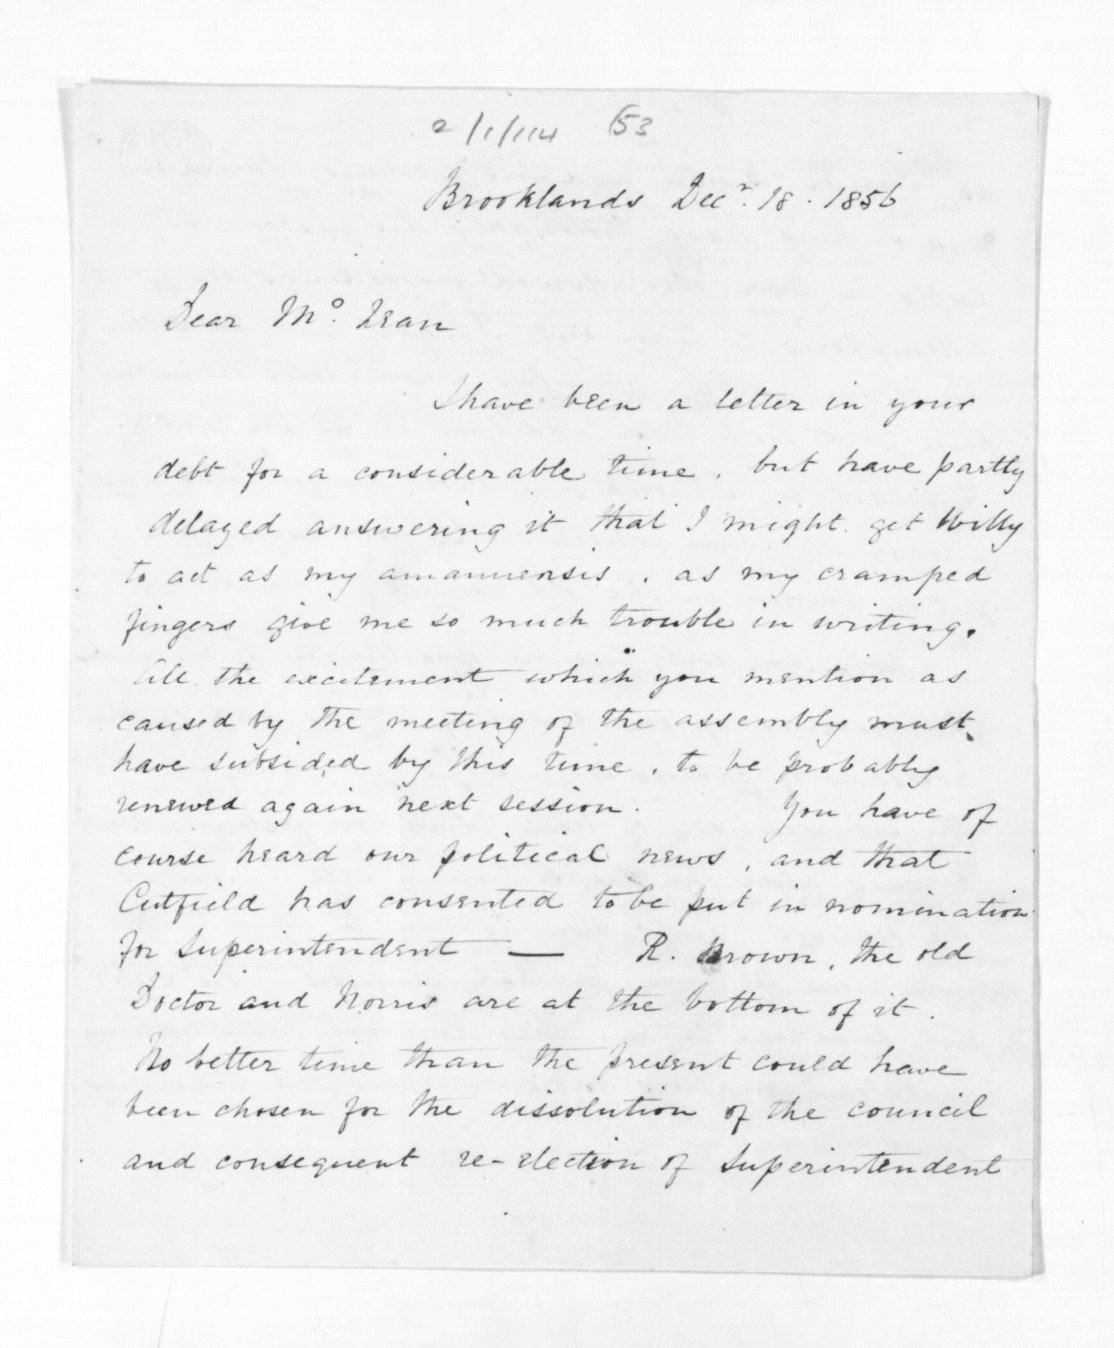 2/1/114 (53
Brooklands Decr. 18. 1856
Dear Mo. Lean
I have been a letter in your
debt for a considerable time, but have partly
delayed answering it that I might get Willy
to act as my amanuensis, as my cramped
fingers give me so much trouble in writing.
All the excitement which you mention as
caused by the meeting of the assembly must
have subsided by this time, to be probably
renewed again next session. You have of
course heard our political news, and that
Cutfield has consented to be put in nomination
for Superintendent — R. Brown, the old
Doctor and Norris are at the bottom of it.
No better time than the present could have
been chosen for the dissolution of the council
and consequent re-election of Superintendent